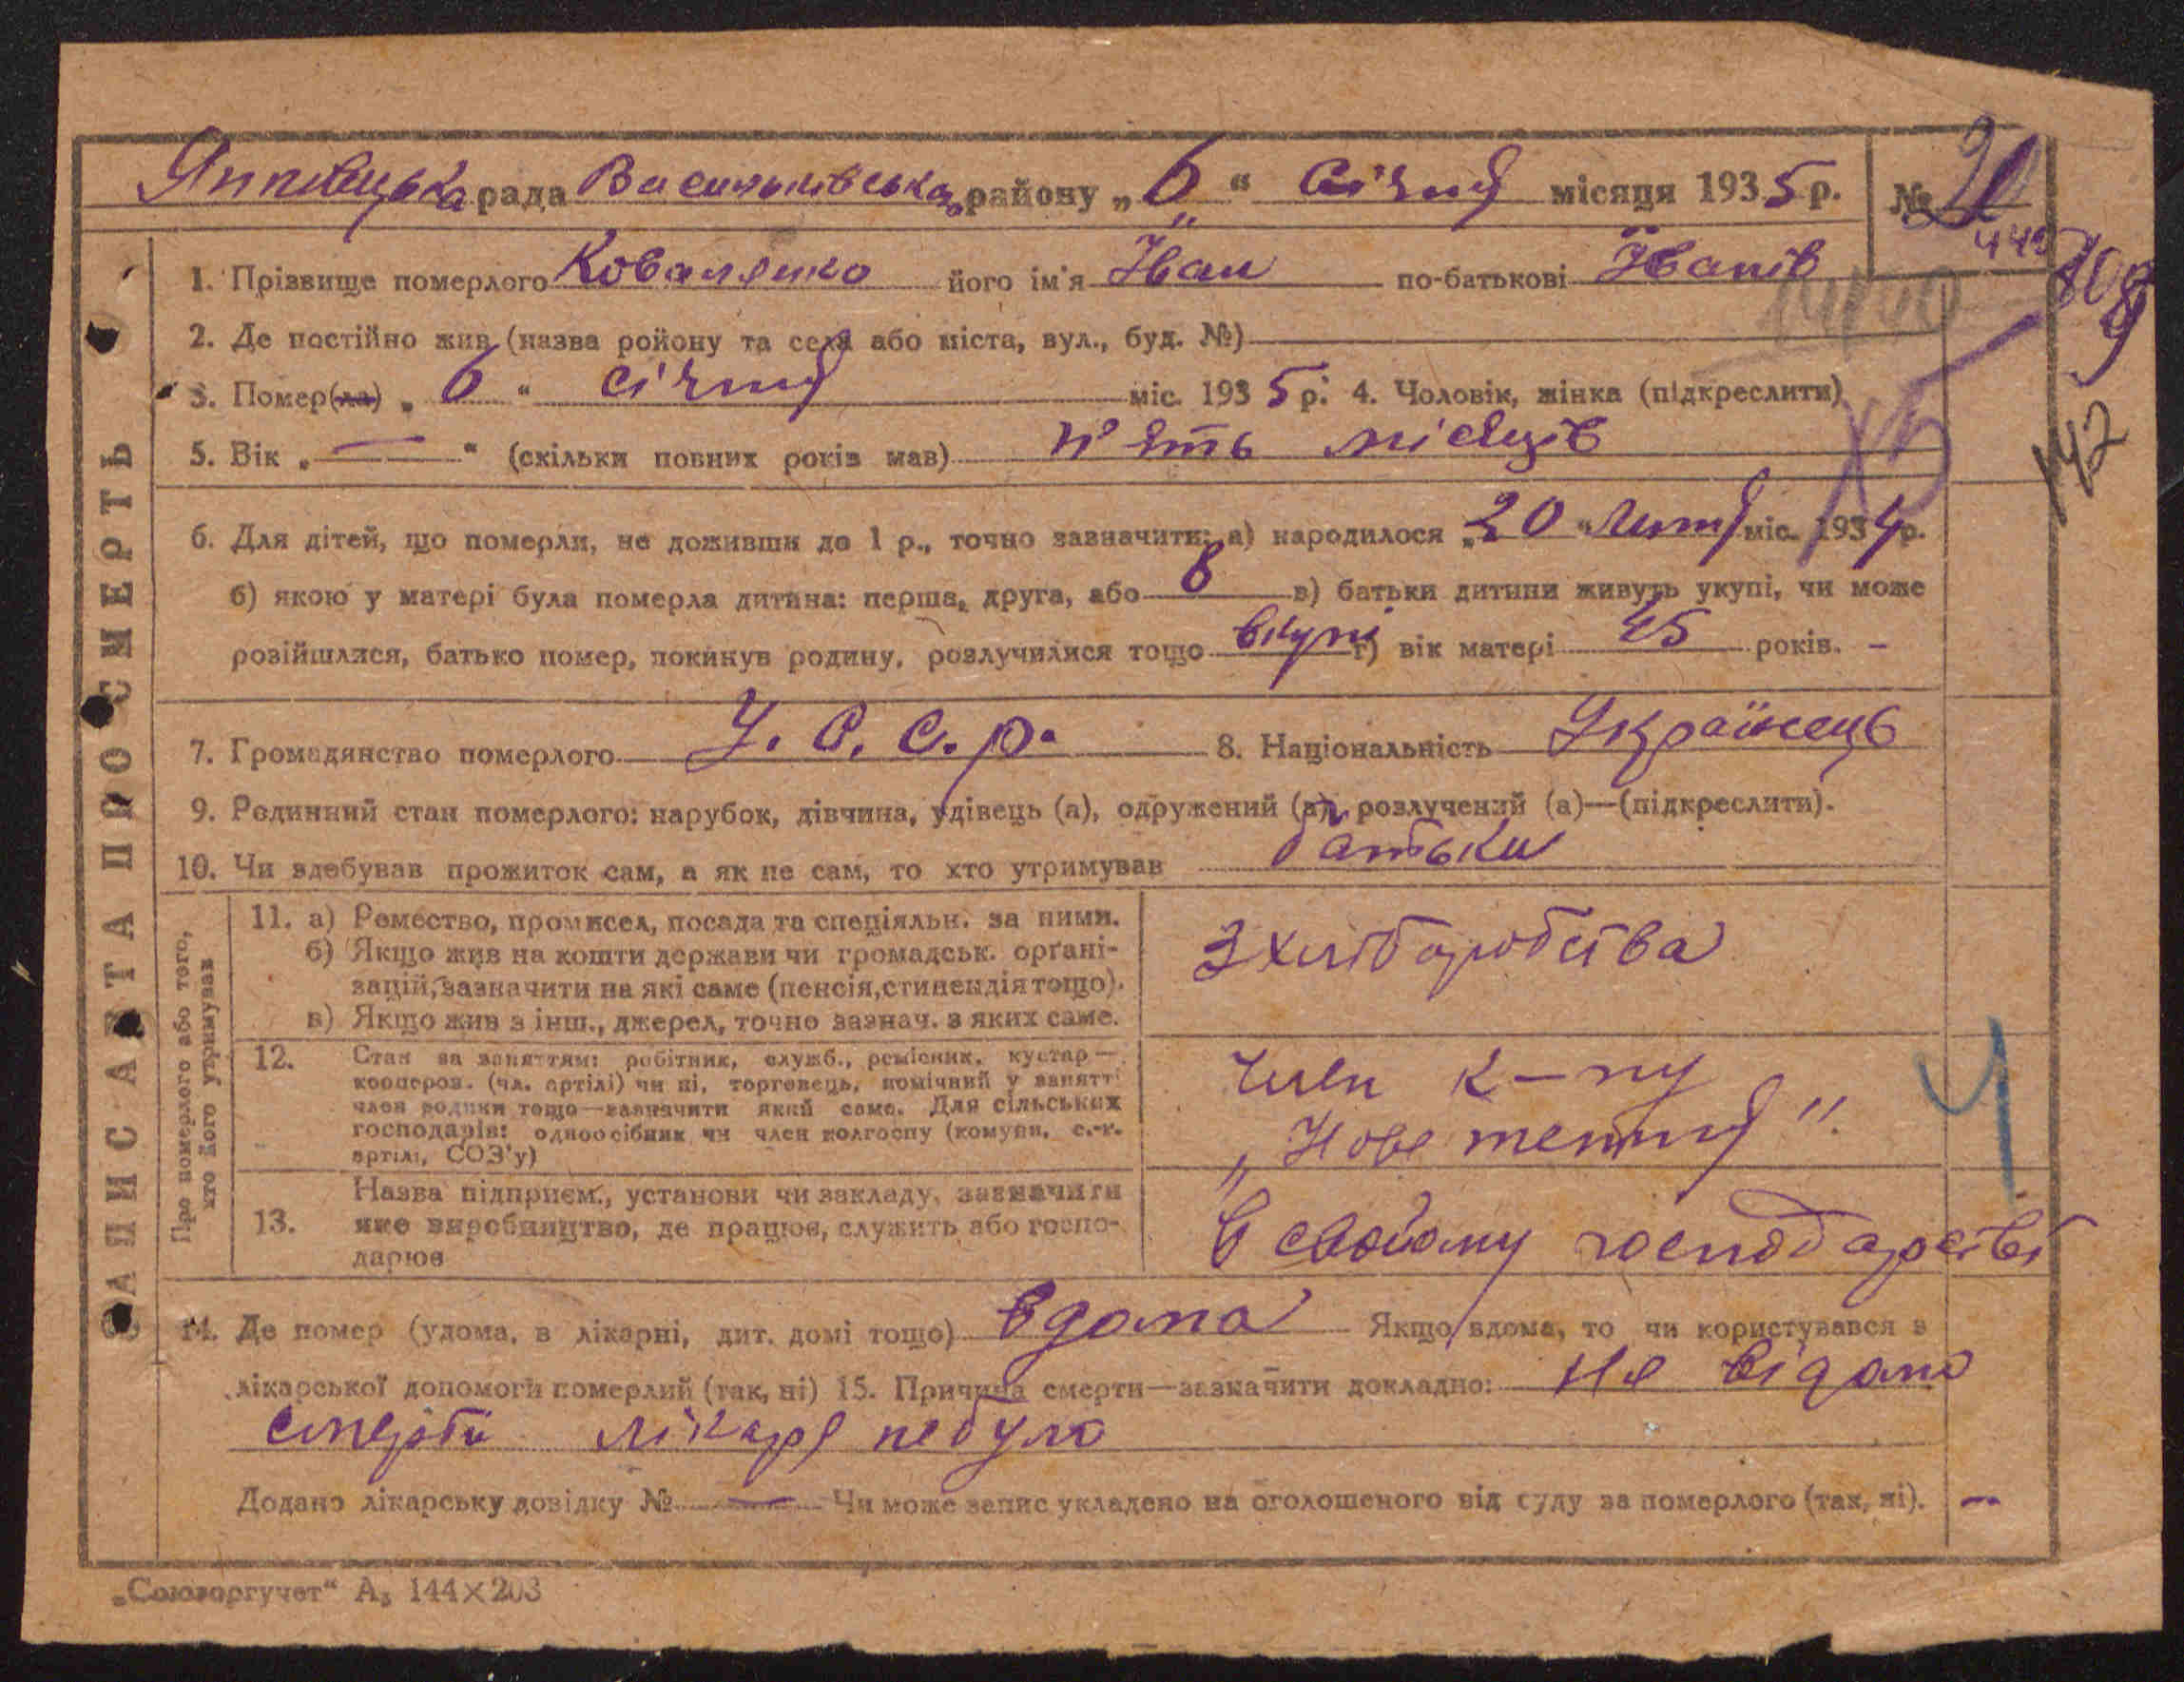 рада Васильківська району „ 6 “ Січня місяця 1935 р. №
1. Прізвище померлого Коваленко його ім'я Іван по-батькові Іванів
2. Де постійно жив (назва ройону та села або міста, вул., буд. №)
3. Помер(ла) „ 6 “ січня міс. 1935 р. 4. Чоловік, жінка (підкреслити)
5. Вік „ — “ (скільки повних років мав) п'ять місяців
6. Для дітей, що померли, не доживши до 1 р., точно зазначити: а) народилося „ 20 “ Лютя міс. 1934 р.
б) якою у матері була померла дитина: перша, друга, або 8 в) батьки дитини живуть укупі, чи може
розійшлися, батько помер, покинув родину, розлучилися тощо вкупі г) вік матері 45 років. –
7. Громадянство померлого У. С. С. р. 8. Національність Українець
9. Родинний стан померлого: парубок, дівчина, удівець (а), одружений (а), розлучений (а)—(підкреслити).
10. Чи здобував прожиток сам, а як не сам, то хто утримував батьки
ЗАПИС АКТА ПРО СМЕРТЬ
Про померлого або того,
хто його утримував
11. а) Ремество, промисел, посада та спеціяльн. за ними.
б) Якщо жив на кошти держави чи громадськ. орґані-
зацій, зазначити на які саме (пенсія, стипендія тощо).
в) Якщо жив з інш., джерел, точно зазнач. з яких саме.
З хліборобства
12. Стан за заняттям: робітник, служб., ремісник, кустар —
коопиров. (чл. артілі) чи ні, торговець, помічний у занятті
член родини тощо—зазначити який саме. Для сільських
господарів: одноосібник чи член колгоспу (комуни, с.-г.
артілі, СОЗ'у)
член к–пу
„Нове
13. Назва підприєм., установи чи закладу, зазначити
яке виробництво, де працює, служить або госпо-
дарює
в свойому господарстві
14. Де помер (удома, в лікарні, дит. домі тощо) вдома Якщо вдома, то чи користувався з
лікарської допомоги померлий (так, ні) 15. Причина смерти—зазначити докладно: Не відома
смерть лікаря небуло
Додано лікарську довідку № — Чи може запис укладено на оголошеного від суду за померлого (так, ні). –
„Союзоргучет“ А₅ 144×203